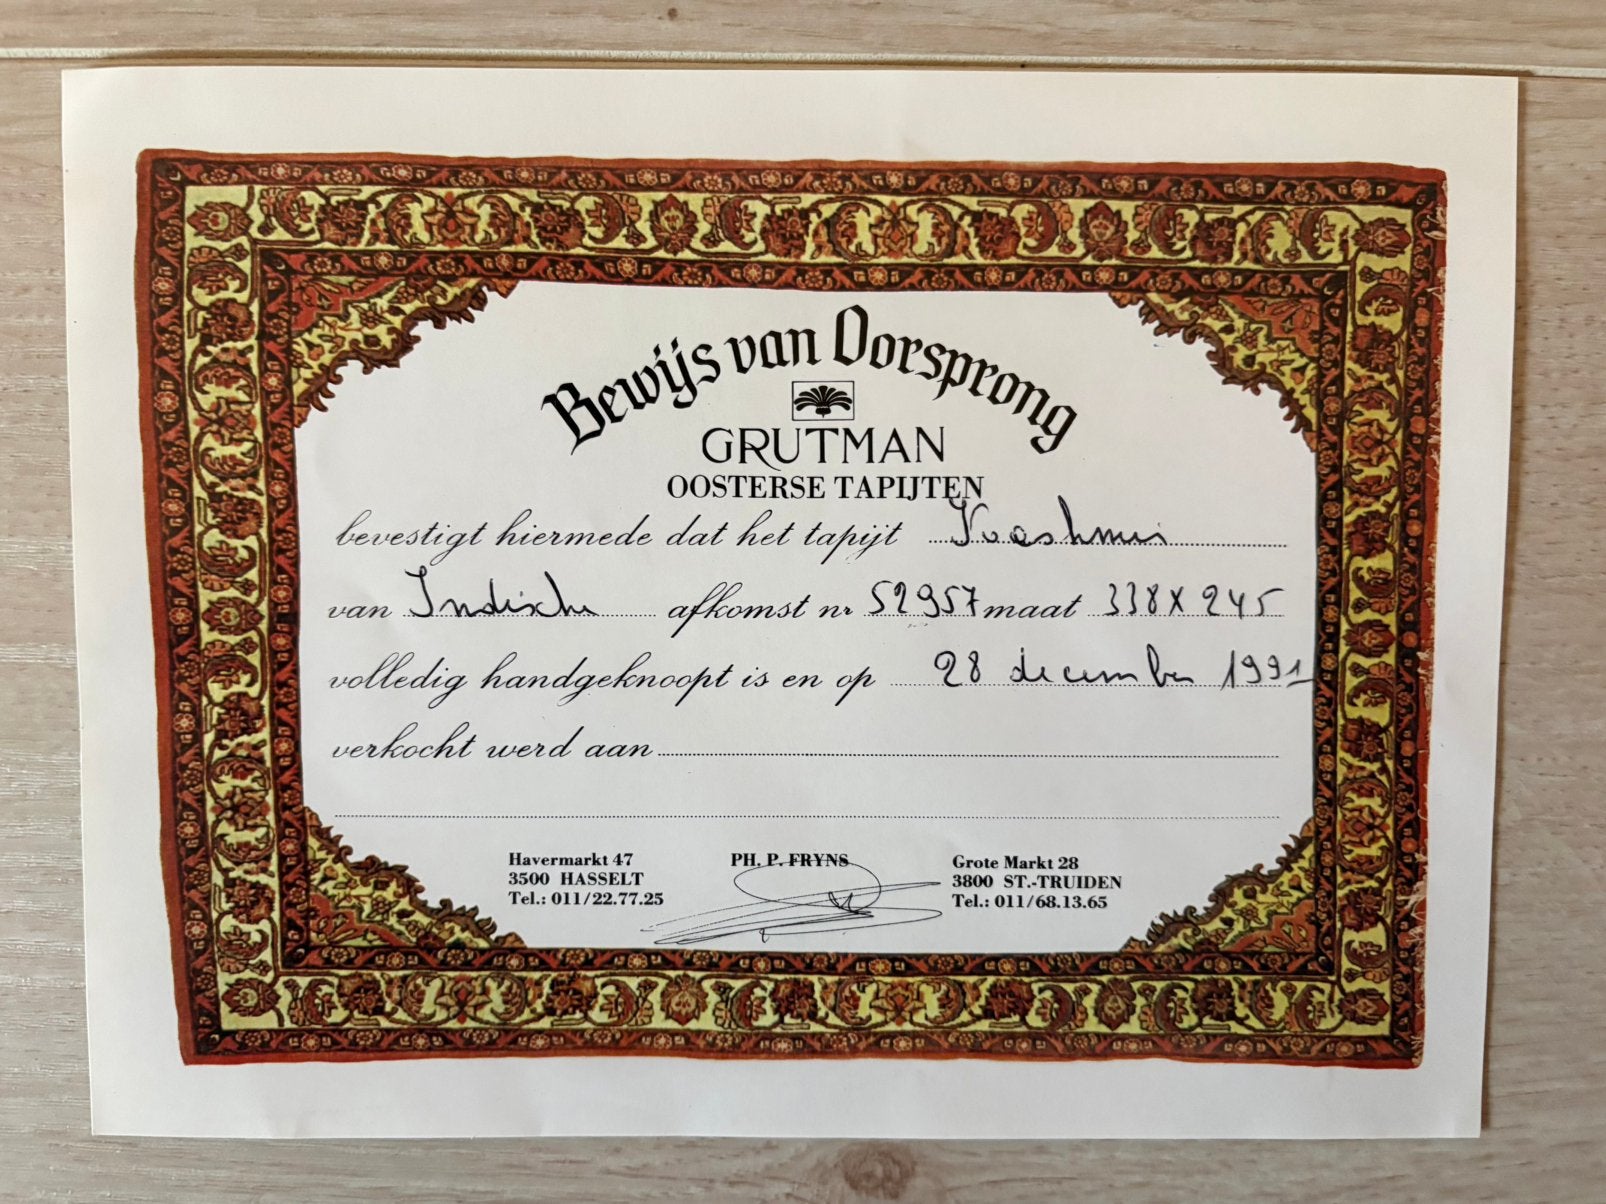 Bewijs van Oorsprong
GRUTMAN
OOSTERSE TAPIJTEN
bevestigt hiermede dat het tapijt
van Indische afkomst nr 52957 maat 338 x 245
volledig handgeknoopt is en op 28 december 1991
verkocht werd aan
Havermarkt 47
3500 HASSELT
Tel.: 011/22.77.25
PH. P. FRYNS
Grote Markt 28
3800 ST.-TRUIDEN
Tel.: 011/68.13.65